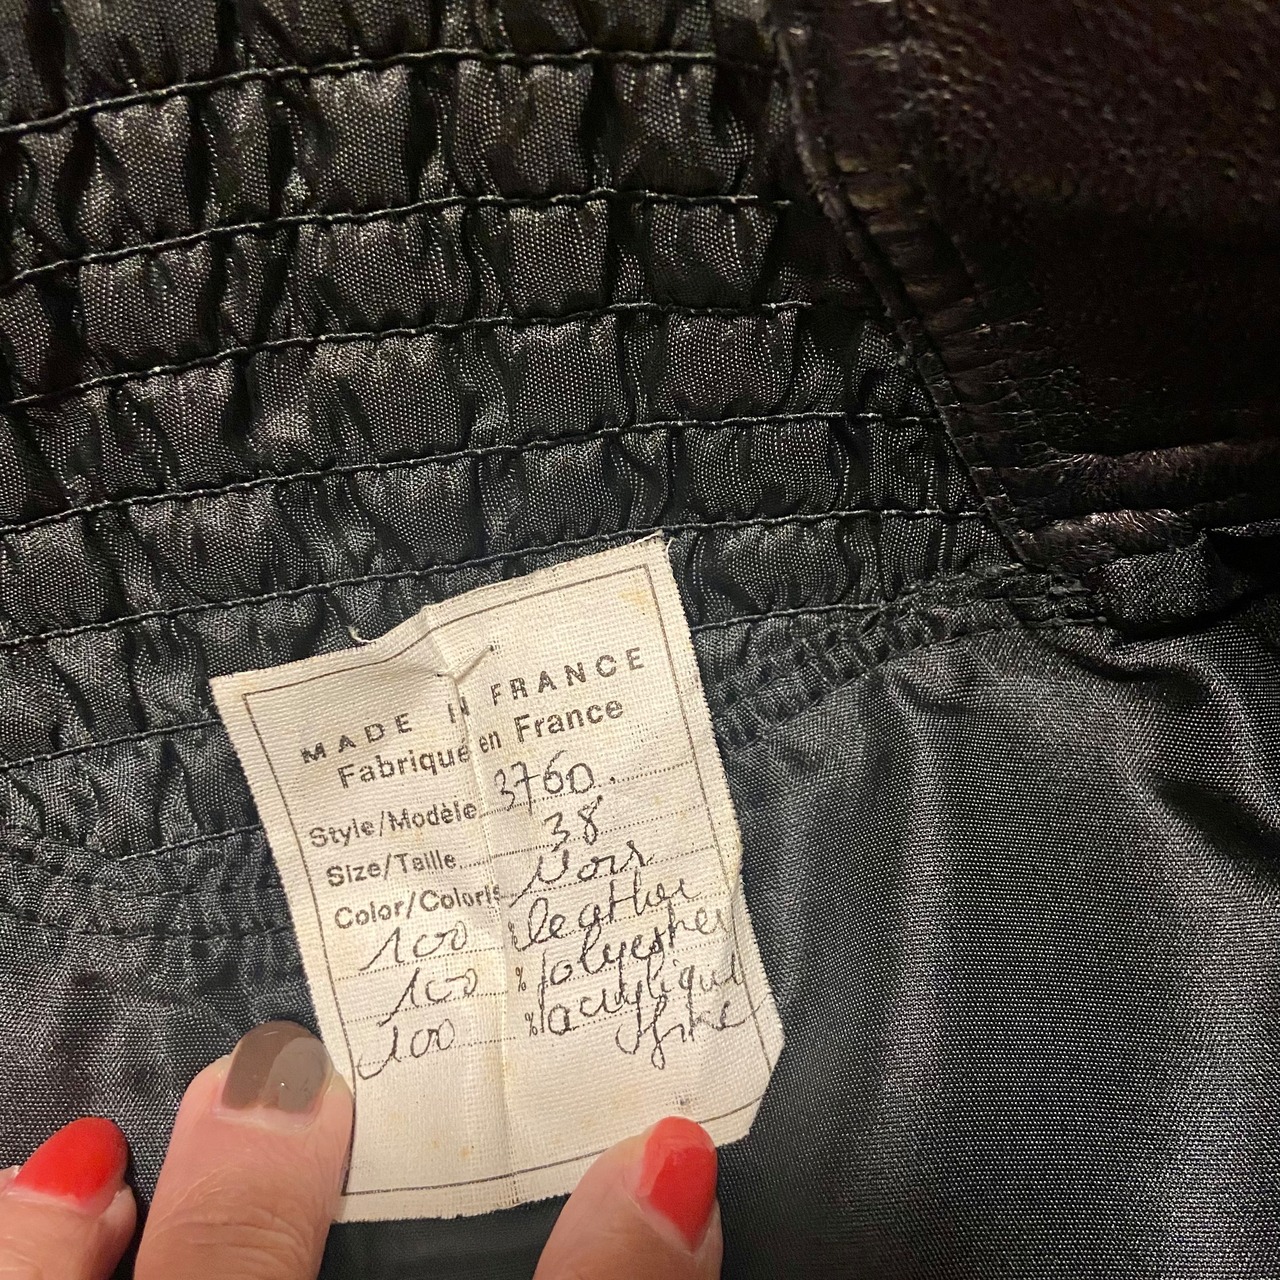 MADE IN FRANCE
Fabriqué en France
Style/Modèle 3760.
Size/Taille 38
Color/Coloris Noir
100 leather
100 % polyesther
100 % acrylique